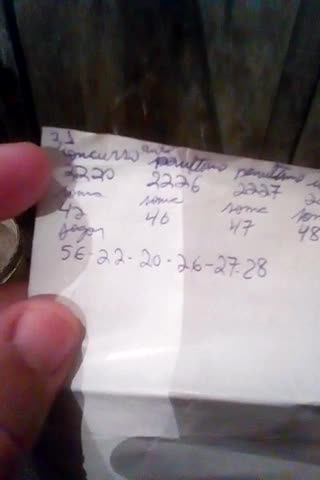 concurso ante penultimo penultimo
2220 2226 2227
soma soma soma
42 46 47 48
jogar
56-22-20-26-27-28